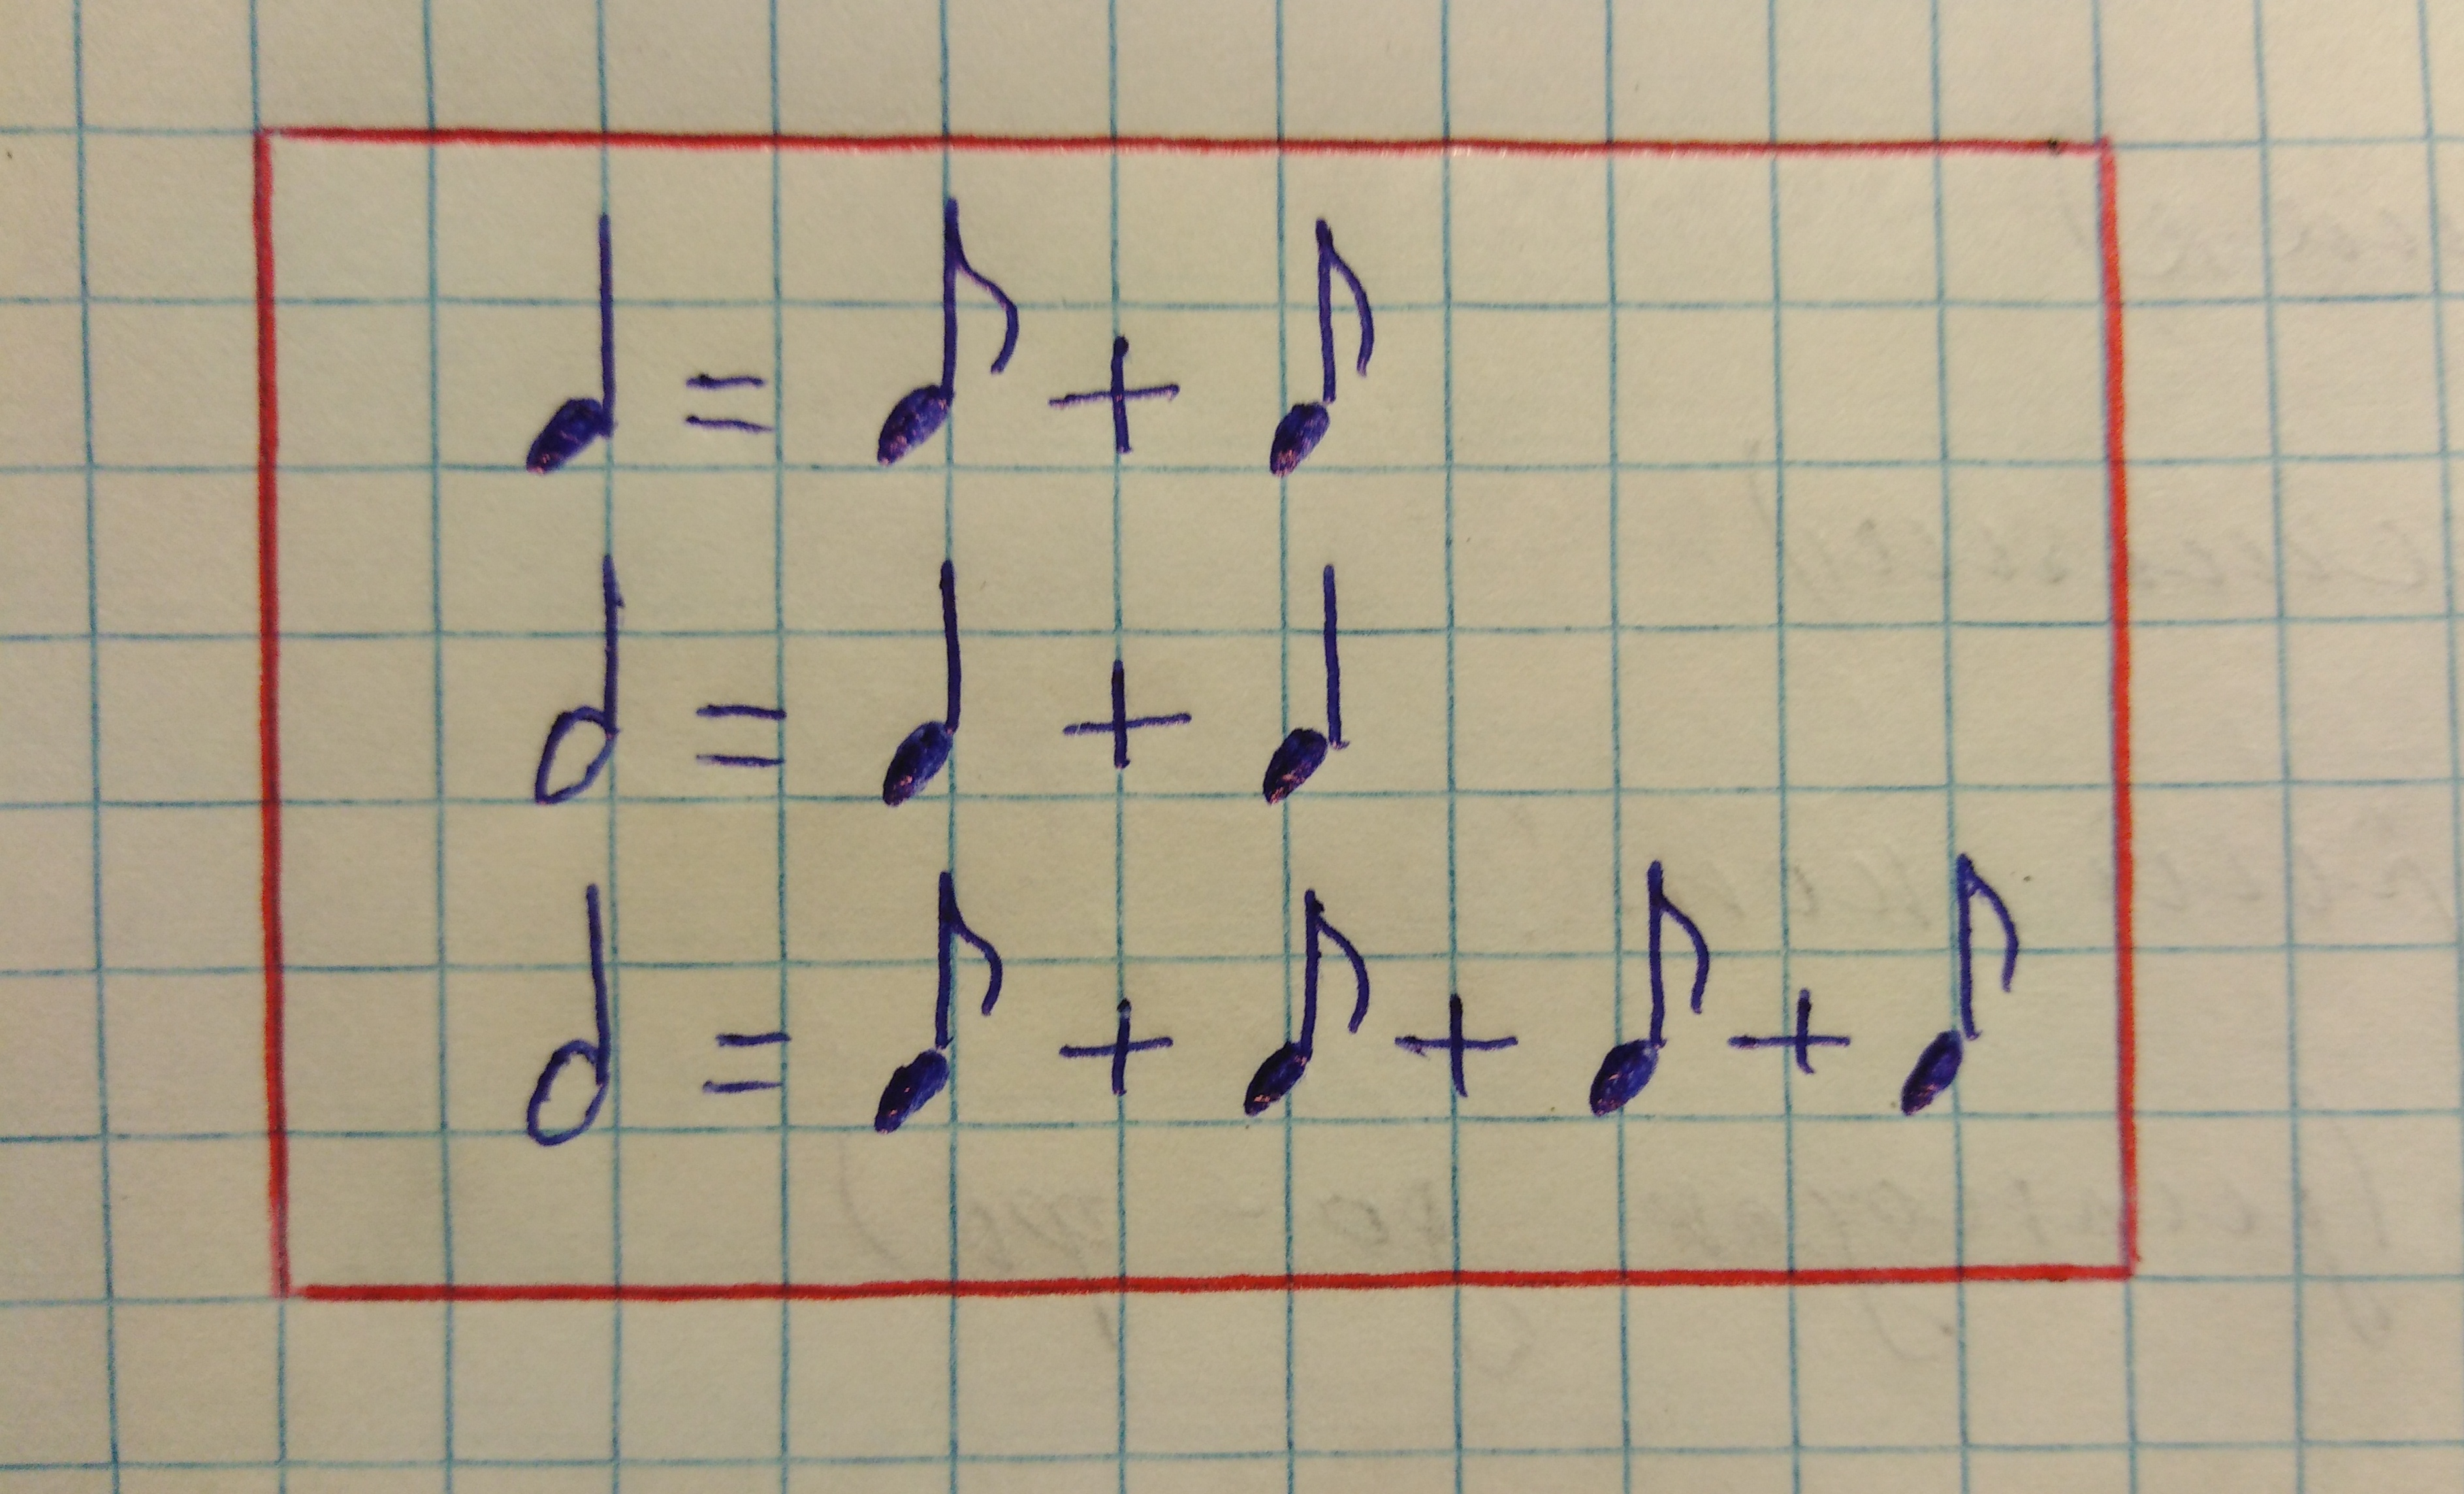 ♩ = ♪ + ♪
𝅗𝅥 = ♩ + ♩
𝅗𝅥 = ♪ + ♪ + ♪ + ♪